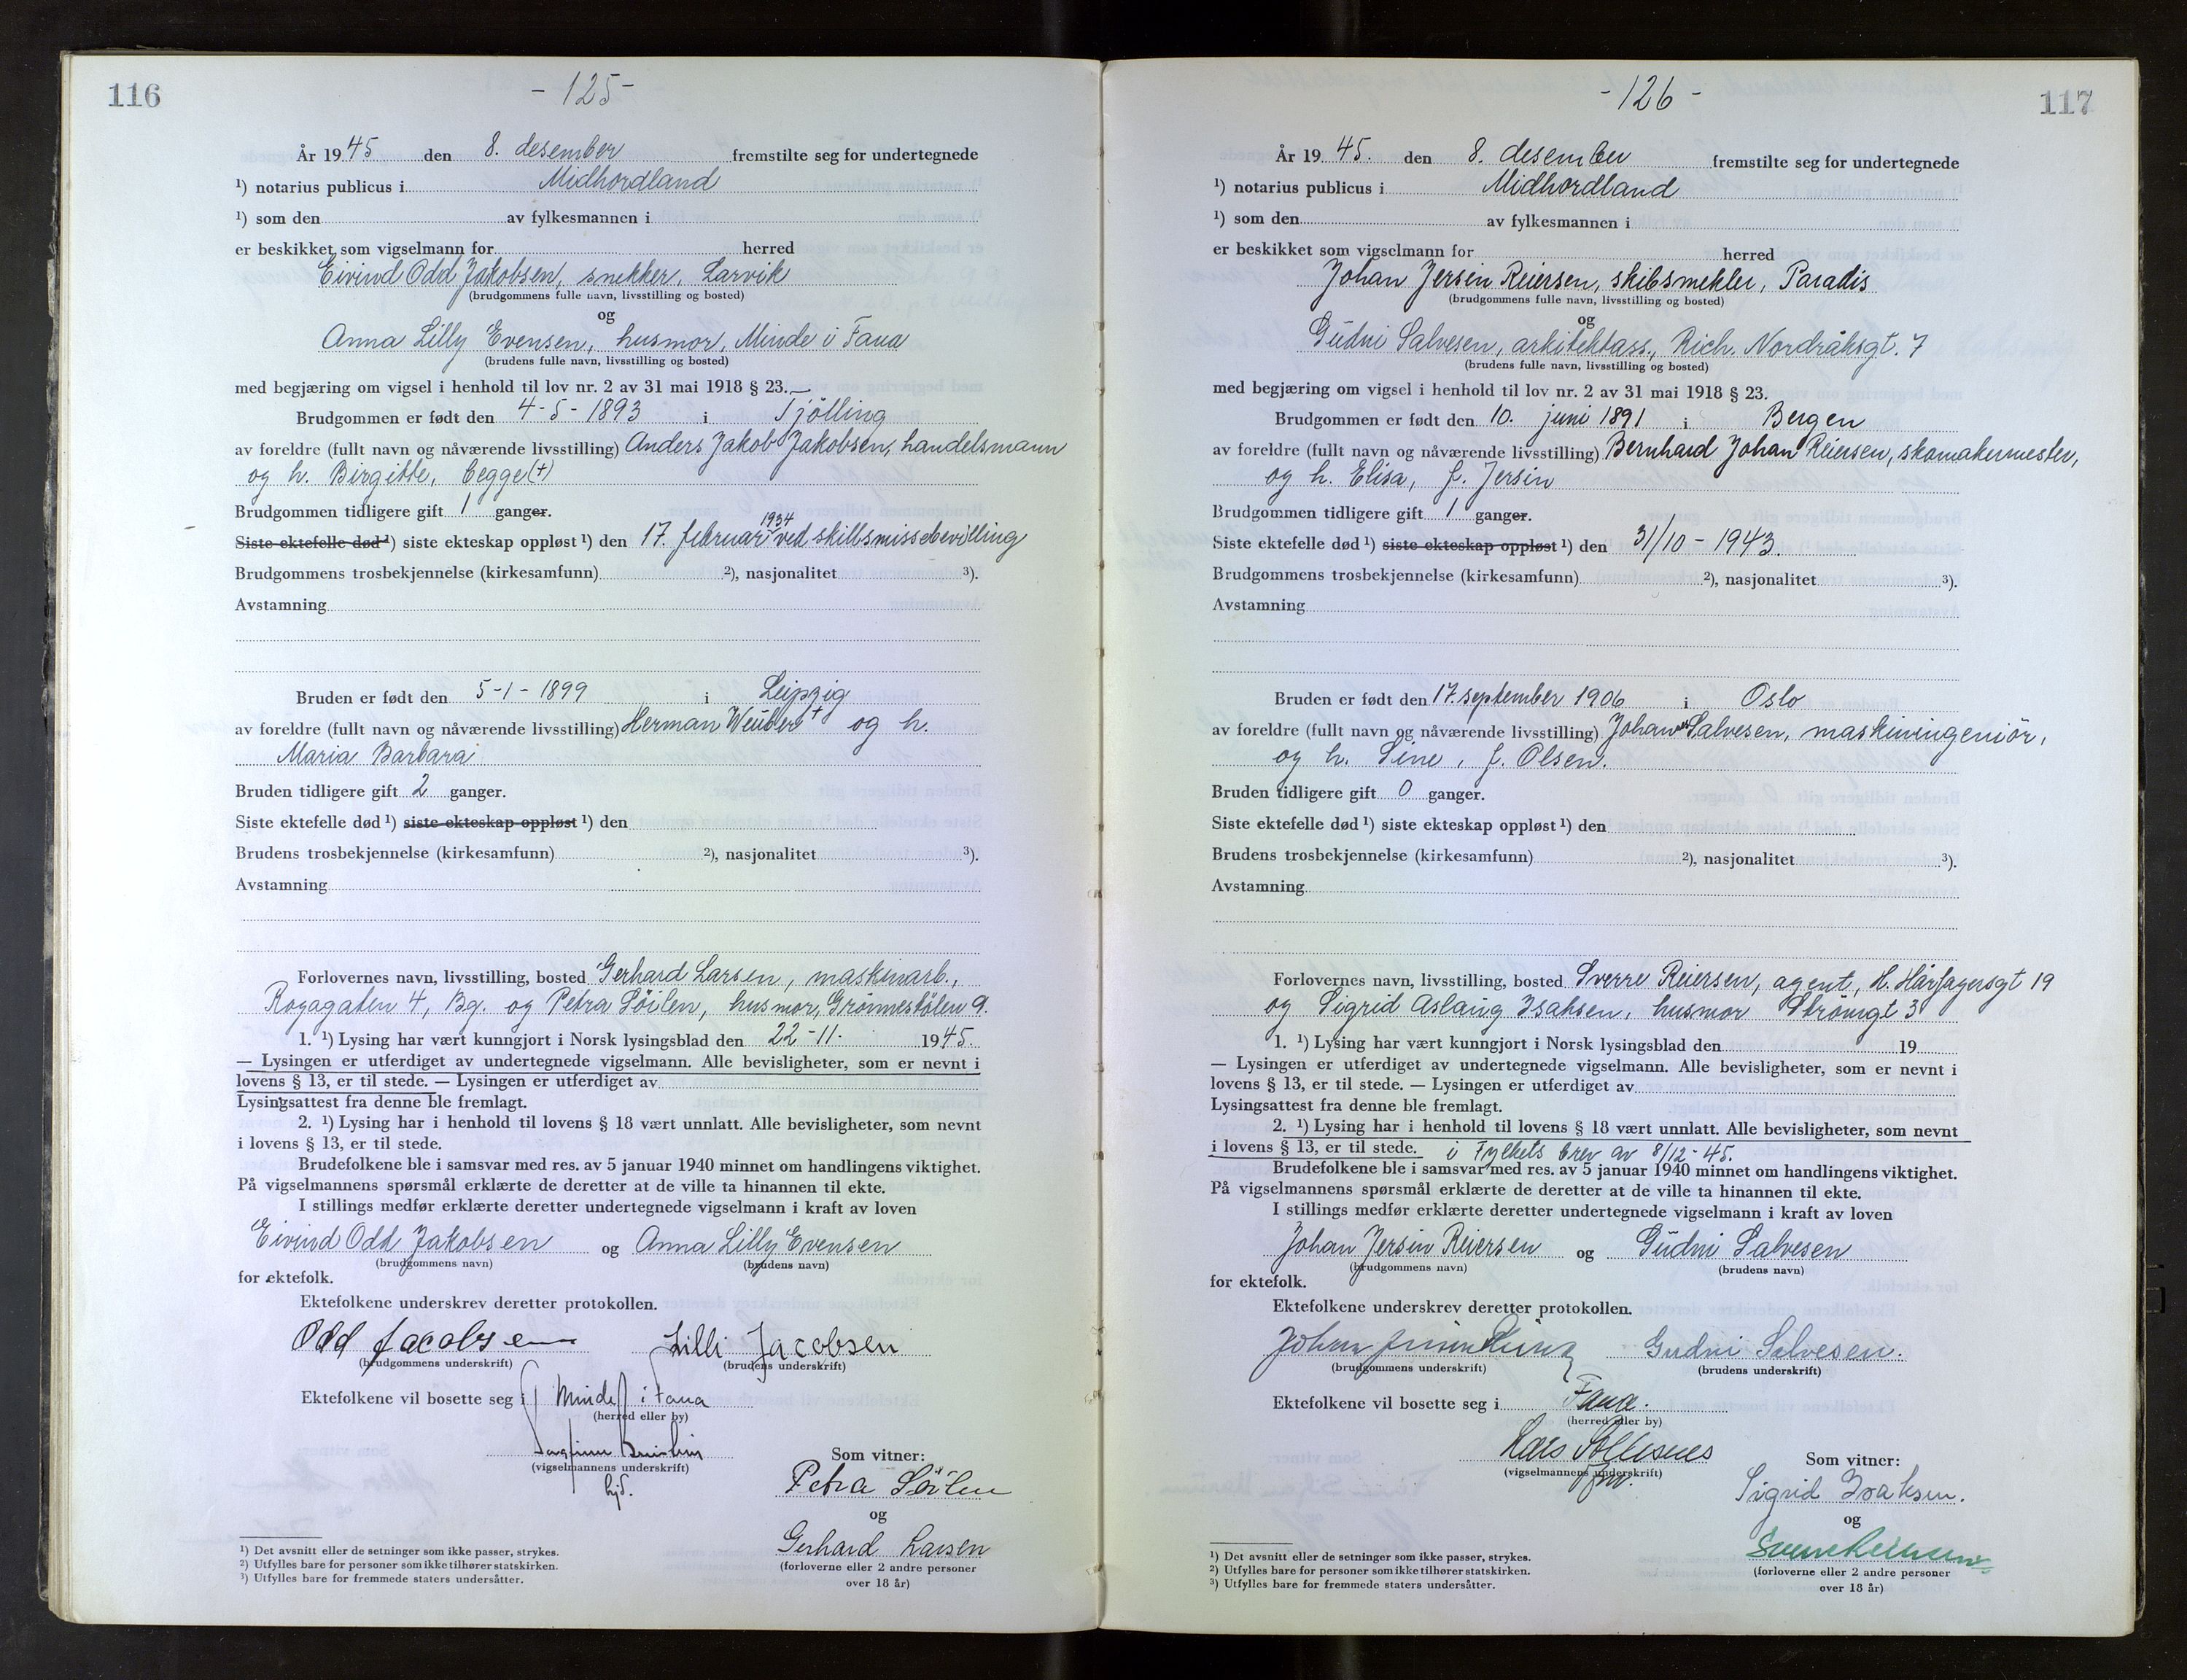 116
- 125 -
År 1945 den 8. desember fremstilte seg for undertegnede
¹) notarius publicus i Midhordland
¹) som den av fylkesmannen i
er beskikket som vigselmann for herred
Eivind Odd Jakobsen, snekker, Larvik
(brudgommens fulle navn, livsstilling og bosted)
og
Anna Lilly Evensen, husmor, Minde i Fana
(brudens fulle navn, livsstilling og bosted)
med begjæring om vigsel i henhold til lov nr. 2 av 31 mai 1918 § 23.
Brudgommen er født den 4-5-1893 i Tjölling
av foreldre (fullt navn og nåværende livsstilling) Anders Jakob Jakobsen, handelsmann
og h. Birgitte, begge (+)
Brudgommen tidligere gift 1 ganger.
Siste ektefelle død ¹) siste ekteskap oppløst ¹) den 17. februar 1934 ved skillsmissebevilling
Brudgommens trosbekjennelse (kirkesamfunn) ²), nasjonalitet ³).
Avstamning
Bruden er født den 5-1-1899 i Leipzig
av foreldre (fullt navn og nåværende livsstilling) Herman Weuber + og h.
Maria Barbara
Bruden tidligere gift 2 ganger.
Siste ektefelle død ¹) siste ekteskap oppløst ¹) den
Brudens trosbekjennelse (kirkesamfunn) ²), nasjonalitet ³).
Avstamning
Forlovernes navn, livsstilling, bosted Gerhard Larsen, maskinarb.,
Rogagaten 4, Bg. og Petra Söilen, husmor, Grönnestölen 9.
1. ¹) Lysing har vært kunngjort i Norsk lysingsblad den 22-11- 1945.
— Lysingen er utferdiget av undertegnede vigselmann. Alle bevisligheter, som er nevnt i
lovens § 13, er til stede. — Lysingen er utferdiget av
Lysingsattest fra denne ble fremlagt.
2. ¹) Lysing har i henhold til lovens § 18 vært unnlatt. Alle bevisligheter, som nevnt
i lovens § 13, er til stede.
Brudefolkene ble i samsvar med res. av 5 januar 1940 minnet om handlingens viktighet.
På vigselmannens spørsmål erklærte de deretter at de ville ta hinannen til ekte.
I stillings medfør erklærte deretter undertegnede vigselmann i kraft av loven
Eivind Odd Jakobsen og Anna Lilly Evensen
(brudgommens navn) (brudens navn)
for ektefolk.
Ektefolkene underskrev deretter protokollen.
Odd Jacobsen Lilli Jacobsen
(brudgommens underskrift) (brudens underskrift)
Ektefolkene vil bosette seg i Minde i Fana
(herred eller by)
(vigselmannens underskrift)
Som vitner:
Petra Söilen
og
Gerhard Larsen
(forloverne eller 2 andre personer
over 18 år)
¹) Det avsnitt eller de setninger som ikke passer, strykes.
²) Utfylles bare for personer som ikke tilhører statskirken.
³) Utfylles bare for fremmede staters undersåtter.
117
- 126 -
År 1945. den 8. desember fremstilte seg for undertegnede
¹) notarius publicus i Midhordland
¹) som den av fylkesmannen i
er beskikket som vigselmann for herred
Johan Jersin Reiersen, skibsmekler, Paradis
(brudgommens fulle navn, livsstilling og bosted)
og
Gudni Salvesen, arkitektass., Rich. Nordråksgt. 7
(brudens fulle navn, livsstilling og bosted)
med begjæring om vigsel i henhold til lov nr. 2 av 31 mai 1918 § 23.
Brudgommen er født den 10. juni 1891 i Bergen
av foreldre (fullt navn og nåværende livsstilling) Bernhard Johan Reiersen, skomakermester,
og h. Elisa, f. Jersin
Brudgommen tidligere gift 1 ganger.
Siste ektefelle død ¹) siste ekteskap oppløst ¹) den 31/10 - 1943.
Brudgommens trosbekjennelse (kirkesamfunn) ²), nasjonalitet ³).
Avstamning
Bruden er født den 17. september 1906 i Oslo
av foreldre (fullt navn og nåværende livsstilling) Johan Salvesen, maskiningeniör,
og h. Sine, f. Olsen.
Bruden tidligere gift 0 ganger.
Siste ektefelle død ¹) siste ekteskap oppløst ¹) den
Brudens trosbekjennelse (kirkesamfunn) ²), nasjonalitet ³).
Avstamning
Forlovernes navn, livsstilling, bosted Sverre Reiersen, agent, H. Hårfagersgt 19
og Sigrid Aslaug Isaksen, husmor Strömgt 3
1. ¹) Lysing har vært kunngjort i Norsk lysingsblad den 19
— Lysingen er utferdiget av undertegnede vigselmann. Alle bevisligheter, som er nevnt i
lovens § 13, er til stede. — Lysingen er utferdiget av
Lysingsattest fra denne ble fremlagt.
2. ¹) Lysing har i henhold til lovens § 18 vært unnlatt. Alle bevisligheter, som nevnt
i lovens § 13, er til stede. i Fylkets brev av 8/12-45.
Brudefolkene ble i samsvar med res. av 5 januar 1940 minnet om handlingens viktighet.
På vigselmannens spørsmål erklærte de deretter at de ville ta hinannen til ekte.
I stillings medfør erklærte deretter undertegnede vigselmann i kraft av loven
Johan Jersin Reiersen og Gudni Salvesen
(brudgommens navn) (brudens navn)
for ektefolk.
Ektefolkene underskrev deretter protokollen.
Johan Jersin Reiersen Gudni Salvesen.
(brudgommens underskrift) (brudens underskrift)
Ektefolkene vil bosette seg i Fana.
(herred eller by)
Lars
(vigselmannens underskrift)
Som vitner:
Sigrid Isaksen.
og
Sverre Reiersen
(forloverne eller 2 andre personer
over 18 år)
¹) Det avsnitt eller de setninger som ikke passer, strykes.
²) Utfylles bare for personer som ikke tilhører statskirken.
³) Utfylles bare for fremmede staters undersåtter.